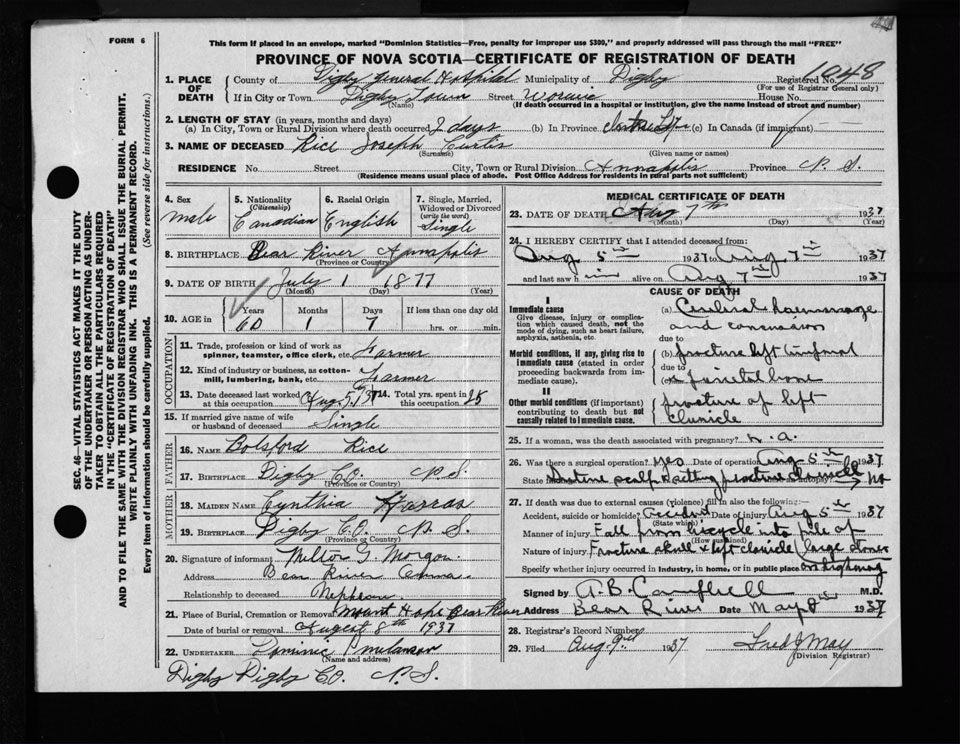 FORM 6
This form if placed in an envelope, marked "Dominion Statistics—Free, penalty for improper use $300," and properly addressed will pass through the mail "FREE"
PROVINCE OF NOVA SCOTIA—CERTIFICATE OF REGISTRATION OF DEATH
1. PLACE OF DEATH County of Digby General Hospital Municipality of Digby Registered No. 1048
(For use of Registrar General only)
If in City or Town Digby Town Street House No.
(If death occurred in a hospital or institution, give the name instead of street and number)
2. LENGTH OF STAY (in years, months and days)
(a) In City, Town or Rural Division where death occurred 2 days (b) In Province Entire Life (c) In Canada (if immigrant)
3. NAME OF DECEASED Rice Joseph Curtis
(Surname) (Given name or names)
RESIDENCE No. Street City, Town or Rural Division Annapolis Province N. S.
(Residence means usual place of abode. Post Office Address for residents in rural parts not sufficient)
4. Sex
male
5. Nationality (Citizenship)
Canadian
6. Racial Origin
English
7. Single, Married, Widowed or Divorced (write the word)
Single
8. BIRTHPLACE Bear River Annapolis
(Province or Country)
9. DATE OF BIRTH July 1 1877
(Month) (Day) (Year)
10. AGE in Years Months Days If less than one day old
60 1 7 hrs. or min.
OCCUPATION
11. Trade, profession or kind of work as spinner, teamster, office clerk, etc. Farmer
12. Kind of industry or business, as cotton-mill, lumbering, bank, etc. Farmer
13. Date deceased last worked at this occupation Aug 5, 1937 14. Total yrs. spent in this occupation 25
15. If married give name of wife or husband of deceased Single
FATHER
16. NAME Botsford Rice
17. BIRTHPLACE Digby Co. N. S.
(Province or Country)
MOTHER
18. MAIDEN NAME Cynthia
19. BIRTHPLACE Digby Co. N. S.
(Province or Country)
20. Signature of informant Milton G. Morgan
Address Bear River Anna.
Relationship to deceased Nephew
21. Place of Burial, Cremation or Removal Mount Hope Bear River
Date of burial or removal August 8th 1937
22. UNDERTAKER Dominic
(Name and address)
Digby Digby Co. N. S.
MEDICAL CERTIFICATE OF DEATH
23. DATE OF DEATH Aug 7th 1937
(Month) (Day) (Year)
24. I HEREBY CERTIFY that I attended deceased from:
Aug 5th 1937 to Aug 7th 1937
and last saw him alive on Aug 7th 1937
CAUSE OF DEATH
I
Immediate cause
Give disease, injury or complication which caused death, not the mode of dying, such as heart failure, asphyxia, asthenia, etc.
(a) Cerebral haemorrhage
and concussion
due to
Morbid conditions, if any, giving rise to immediate cause (stated in order proceeding backwards from immediate cause).
(b) fracture left temporal
due to
(c) & parietal bone
II
Other morbid conditions (if important) contributing to death but not causally related to immediate cause.
fracture of left
clavicle
25. If a woman, was the death associated with pregnancy? n. a.
26. Was there a surgical operation? yes Date of operation Aug 5th 1937
State findings Suture scalp & setting fracture clavicle No
27. If death was due to external causes (violence) fill in also the following:—
Accident, suicide or homicide? Accident Date of injury Aug 5th 1937
(State which)
Manner of injury Fall from bicycle into pile of
(How sustained)
Nature of injury Fracture skull & left clavicle (large stones
Specify whether injury occurred in industry, in home, or in public place on highway
Signed by A. B. Campbell M.D.
Address Bear River Date May 8th 1937
28. Registrar's Record Number
29. Filed Aug 9th 1937 Fred J May
(Division Registrar)
SEC. 46—VITAL STATISTICS ACT MAKES IT THE DUTY
OF THE UNDERTAKER OR PERSON ACTING AS UNDER-
TAKER TO OBTAIN ALL THE PARTICULARS REQUIRED
IN THE "CERTIFICATE OF REGISTRATION OF DEATH"
AND TO FILE THE SAME WITH THE DIVISION REGISTRAR WHO SHALL ISSUE THE BURIAL PERMIT.
WRITE PLAINLY WITH UNFADING INK. THIS IS A PERMANENT RECORD.
Every item of information should be carefully supplied. (See reverse side for instructions.)